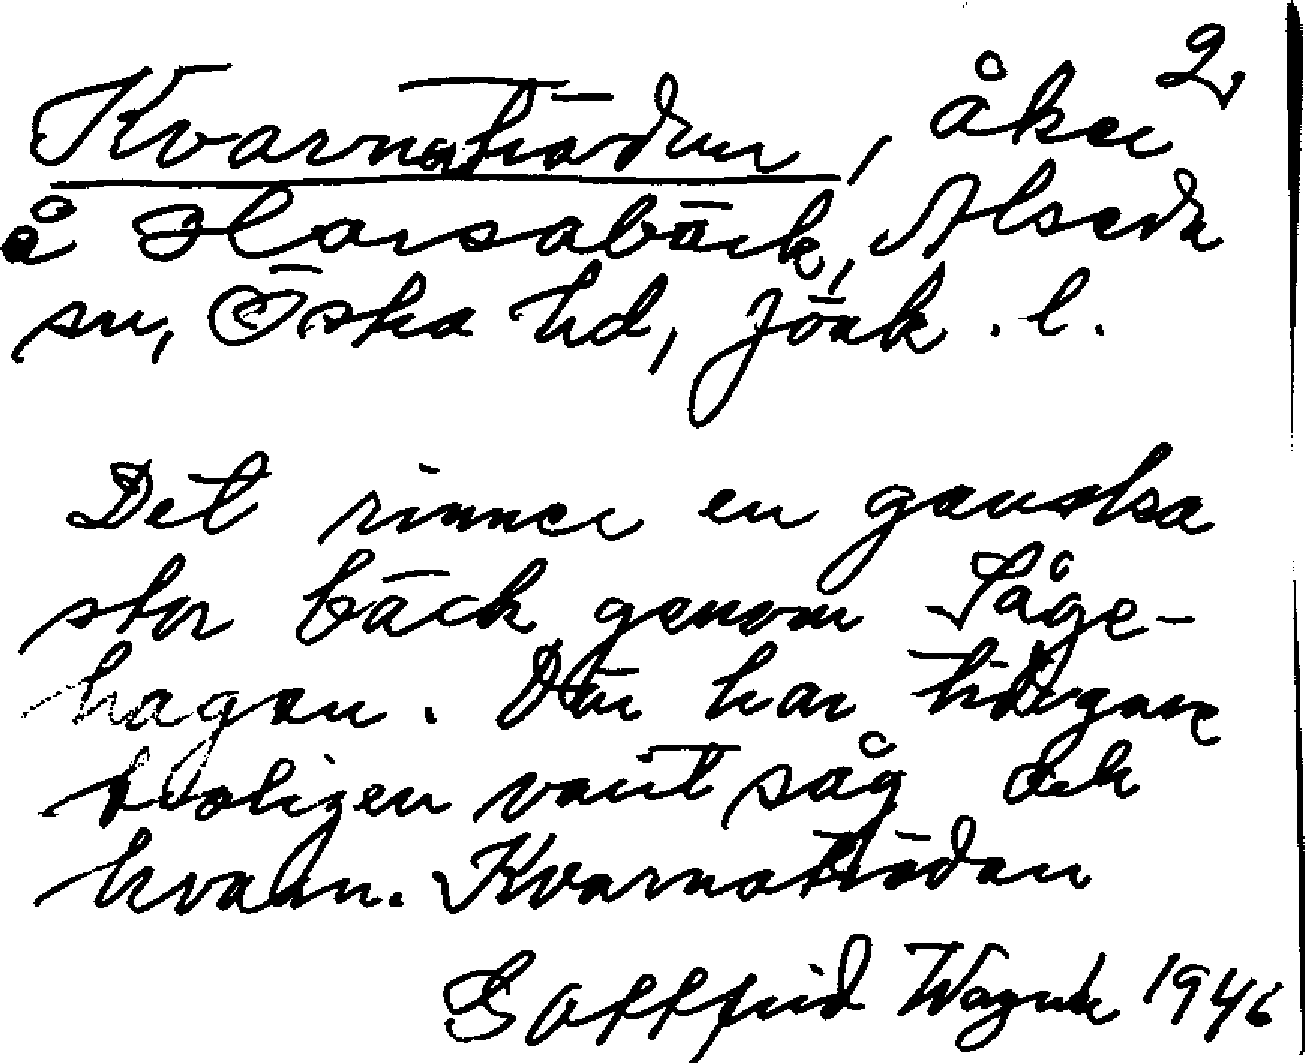 2,
Kvarnaträdan, åker
å Horsabäck, Alseda
sn, Östra hd, Jönk. l.
Det rinner en ganska
stor bäck genom Såge-
hagen. Där har tidigare
troligen varit såg och
kvarn. Kvarnaträdan
Gottfrid 1946